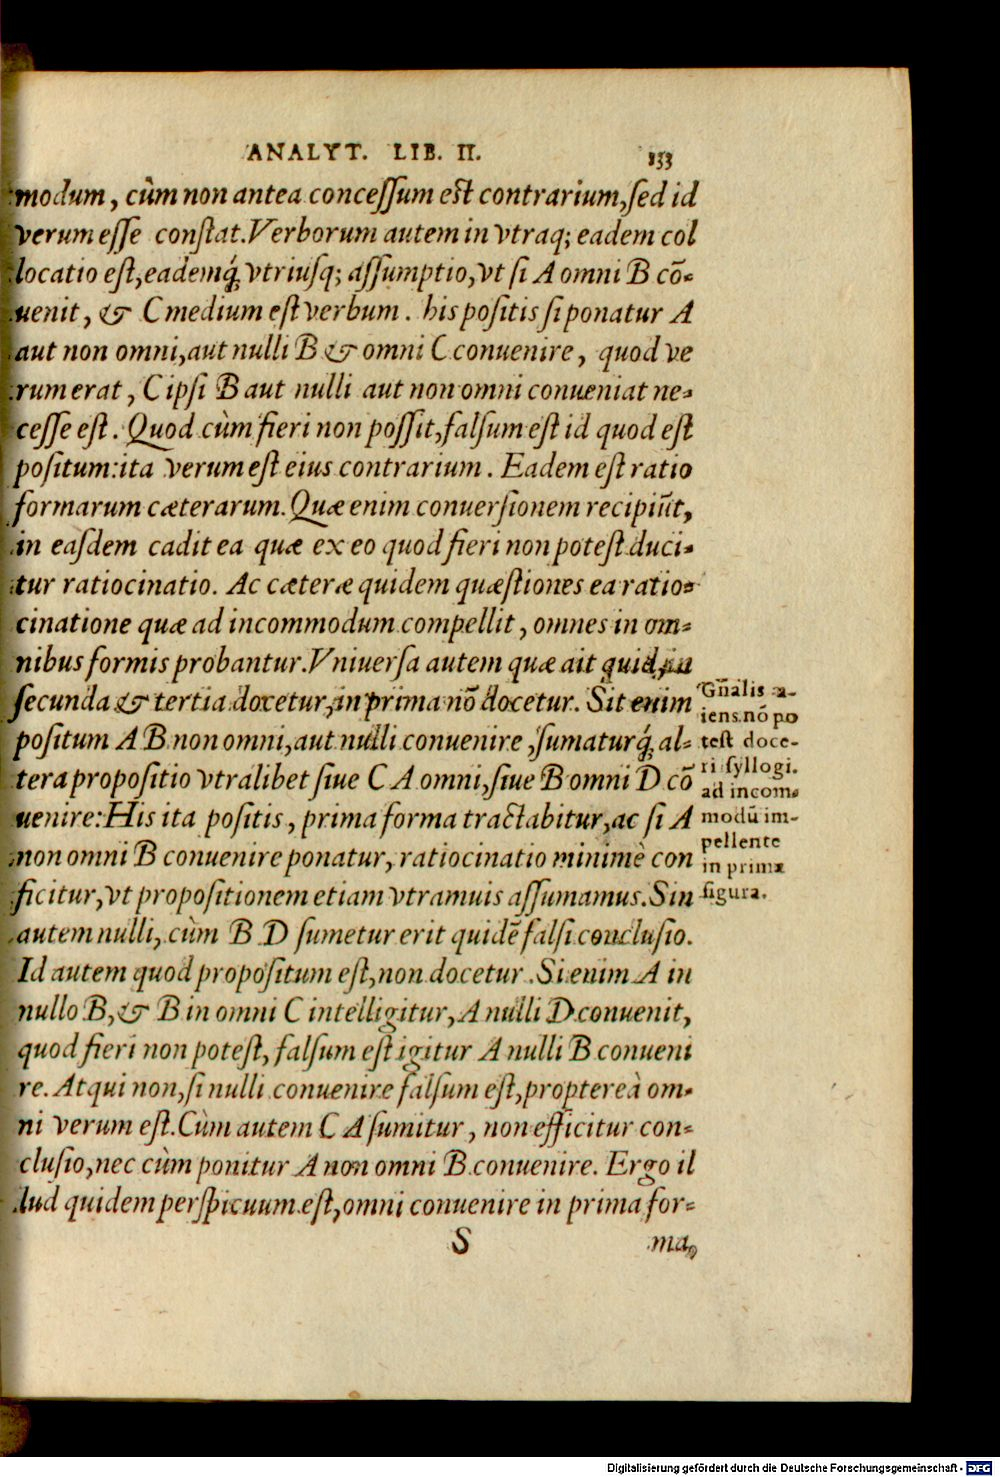 ANALYT. LIB. II. 133
modum, cùm non antea concessum est contrarium, sed id
verum esse constat. Verborum autem in vtraq; eadem col
locatio est, eademq́; vtriusq; assumptio, vt si A omni B cõ-
uenit, & C medium est verbum. his positis si ponatur A
aut non omni, aut nulli B & omni C conuenire, quod ve
rum erat, C ipsi B aut nulli aut non omni conueniat ne-
cesse est. Quod cùm fieri non possit, falsum est id quod est
positum: ita verum est eius contrarium. Eadem est ratio
formarum cæterarum. Quæ enim conuersionem recipiũt,
in easdem cadit ea quæ ex eo quod fieri non potest duci-
tur ratiocinatio. Ac cæteræ quidem quæstiones ea ratio-
cinatione quæ ad incommodum compellit, omnes in om-
nibus formis probantur. Vniuersa autem quæ ait quid, in
secunda & tertia docetur, in prima nõ docetur. Sit enim
positum A B non omni, aut nulli conuenire, sumaturq́; al-
tera propositio vtralibet siue C A omni, siue B omni D cõ
uenire: His ita positis, prima forma tractabitur, ac si A
non omni B conuenire ponatur, ratiocinatio minimè con
ficitur, vt propositionem etiam vtramuis assumamus. Sin
autem nulli, cùm B D sumetur erit quidẽ falsi conclusio.
Id autem quod propositum est, non docetur. Si enim A in
nullo B, & B in omni C intelligitur, A nulli D conuenit,
quod fieri non potest, falsum est igitur A nulli B conueni
re. Atqui non, si nulli conuenire falsum est, proptereà om-
ni verum est. Cùm autem C A sumitur, non efficitur con-
clusio, nec cùm ponitur A non omni B conuenire. Ergo il
lud quidem perspicuum est, omni conuenire in prima for-
S ma,
Gñalis a-
iens nõ po
test doce-
ri syllogi.
ad incom-
modũ im-
pellente
in prima
figura.
Digitalisierung gefördert durch die Deutsche Forschungsgemeinschaft - DFG